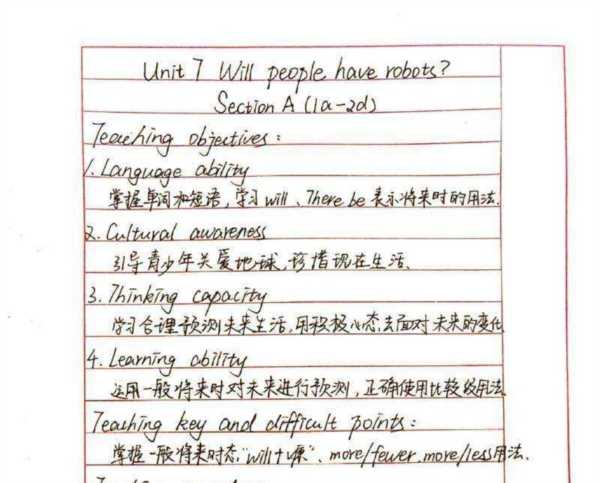 Unit 7 Will people have robots?
Section A (1a-2d)
Teaching objectives:
1. Language ability
掌握单词和短语,学习will、There be 表示将来时的用法.
2. Cultural awareness
引导青少年关爱地球,珍惜现在生活.
3. Thinking capacity
学习合理预测未来生活,用积极心态去面对未来的变化
4. Learning ability
运用一般将来时对未来进行预测,正确使用比较级用法
Teaching key and difficult points:
掌握一般将来时态"will+v原"、more/fewer, more/less用法.